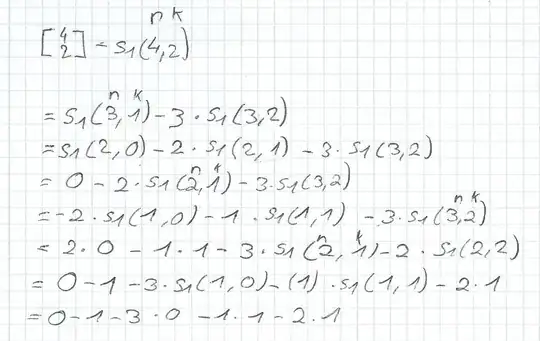 n k
[4 2] = s₁(4,2)
n k
= s₁(3,1) - 3 · s₁(3,2)
= s₁(2,0) - 2 · s₁(2,1) - 3 · s₁(3,2)
n k
= 0 - 2 · s₁(2,1) - 3 · s₁(3,2)
n k
= -2 · s₁(1,0) - 1 · s₁(1,1) - 3 · s₁(3,2)
n k
= 2 · 0 - 1 · 1 - 3 · s₁(2,1) - 2 · s₁(2,2)
= 0 - 1 - 3 · s₁(1,0) - (1) · s₁(1,1) - 2 · 1
= 0 - 1 - 3 · 0 - 1 · 1 - 2 · 1